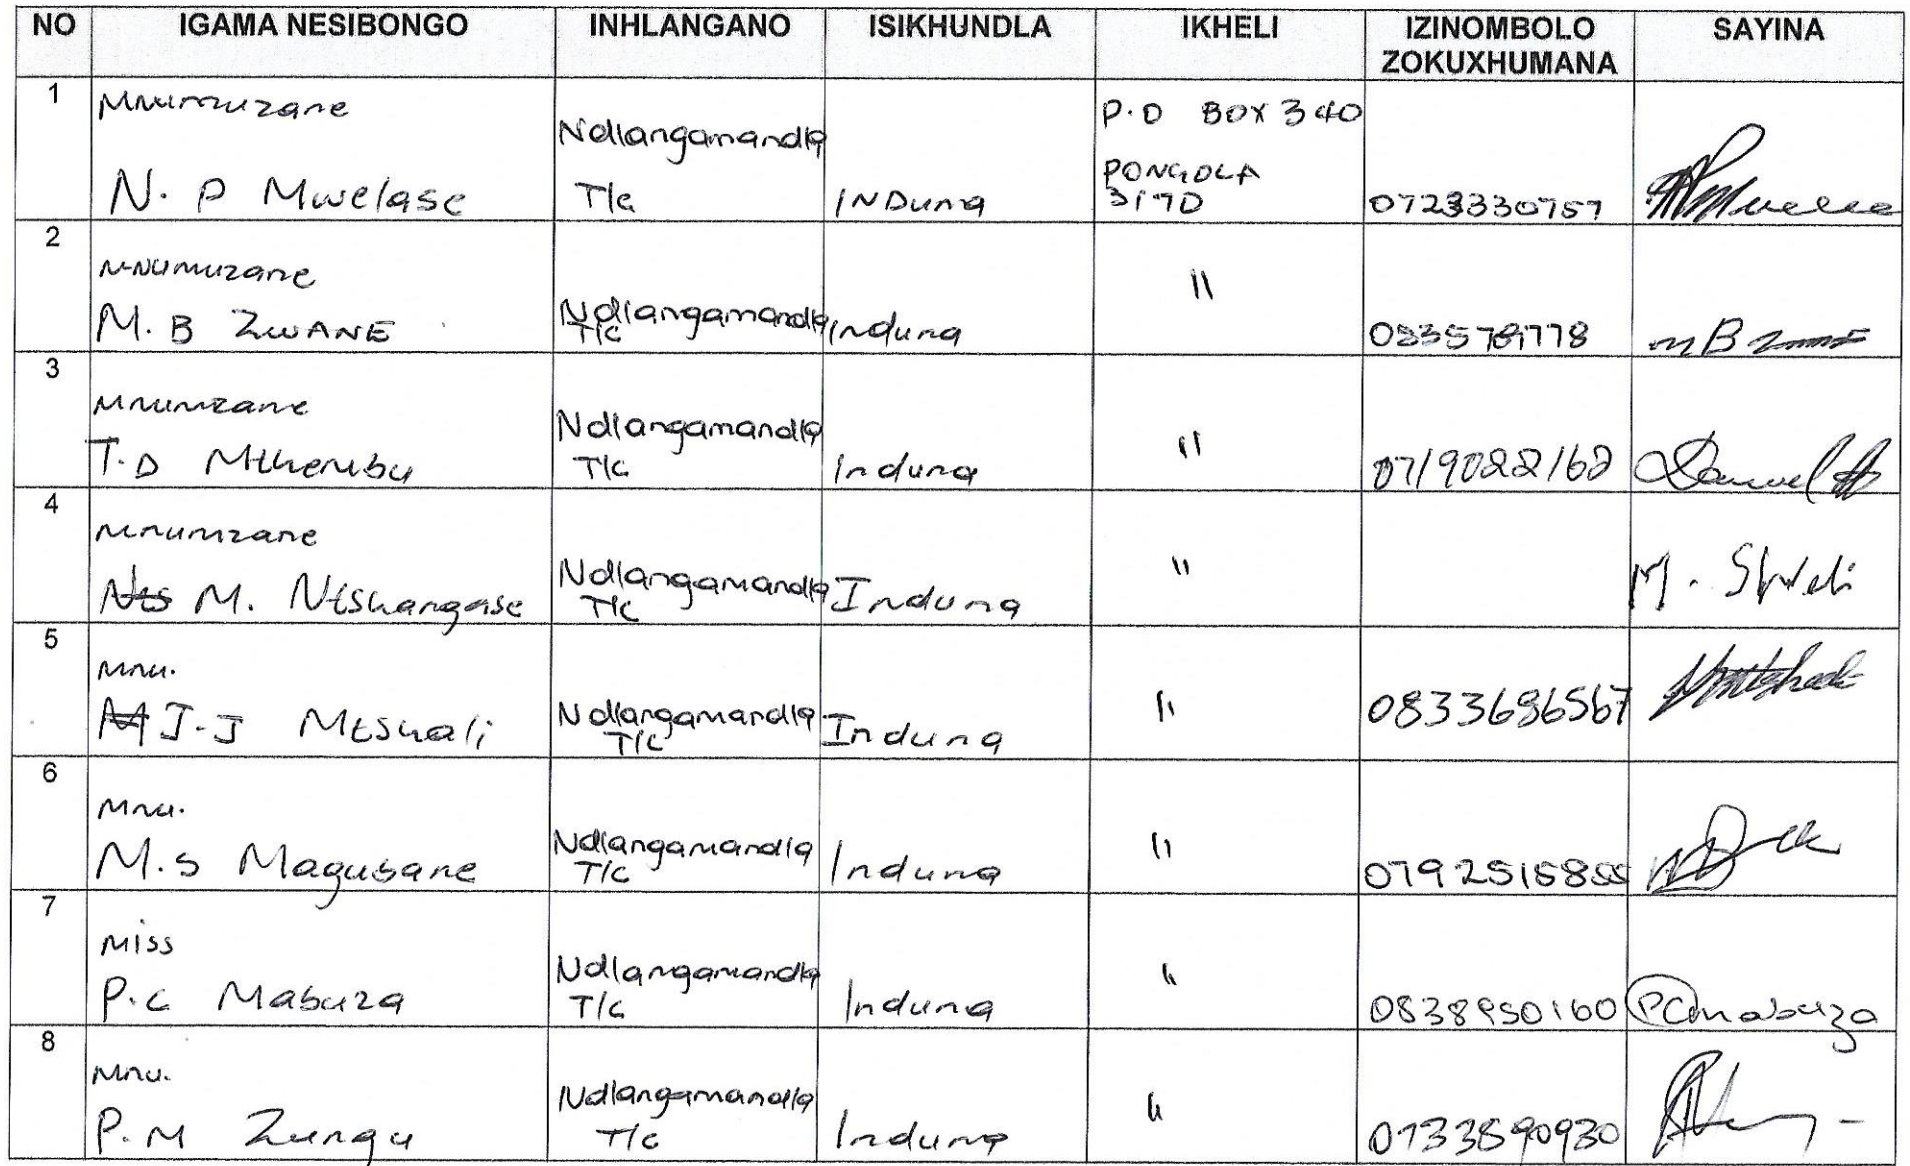 NO IGAMA NESIBONGO INHLANGANO ISIKHUNDLA IKHELI IZINOMBOLO ZOKUXHUMANA SAYINA
1
Mnumuzane
N. P Mwelase
Ndlangamandla
T/c
INDuna
P.O BOX 340
PONGOLA
3170
0723330757
2
Mnumuzane
M. B ZWANE
Ndlangamandla
T/C
Induna
"
m B
3
Mnumzane
T.D Mthembu
Ndlangamandla
T/C
Induna
"
0719022162
4
Mnumzane
M. Ntshangase
Ndlangamandla
T/C
Induna
"
M.
5
Mnu.
J.J Mtshali
Ndlangamandla
T/C
Induna
"
0833686567
6
Mnu.
M.S Magubane
Ndlangamandla
T/C
Induna
"
0792515855
7
Miss
P.C Mabuza
Ndlangamandla
T/C
Induna
"
0838950160
PCmabuza
8
Mnu.
P.M Zungu
Ndlangamandla
T/C
Induna
"
0733590930